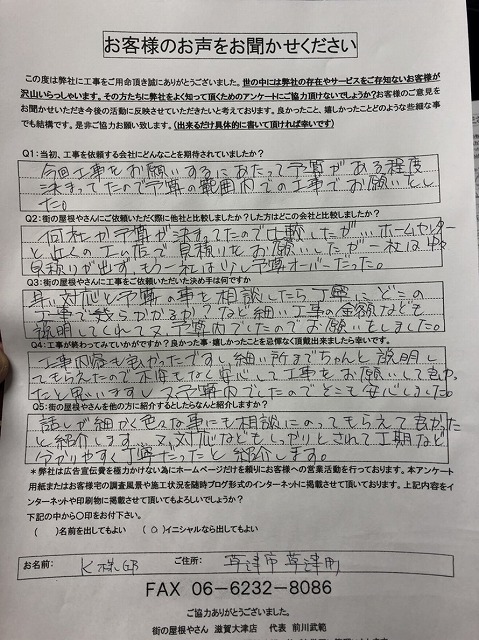 お客様のお声をお聞かせください
この度は弊社に工事をご用命頂き誠にありがとうございました。世の中には弊社の存在やサービスをご存知ないお客様が
沢山いらっしゃいます。その方たちに弊社をよく知って頂くためのアンケートにご協力頂けないでしょうか？お客様のご意見を
お聞かせいただき今後の活動に反映させていただきたいと考えております。良かったこと、嬉しかったことどのような些細な事
でも結構です。是非ご協力お願い致します。（出来るだけ具体的に書いて頂ければ幸いです）
Q1：当初、工事を依頼する会社にどんなことを期待されていましたか？
今回工事をお願いするにあたって予算がある程度
決まってたので予算の範囲内での工事でお願いとし
た。
Q2：街の屋根やさんにご依頼いただく際に他社と比較しましたか？した方はどこの会社と比較しましたか？
何社か予算が決まってたので比較したが…ホームセンター
と近くの工ム店で見積りをお願いしたが一社は
見積りが出ず、もう一社は少し予算オーバーだった。
Q3：街の屋根やさんにご依頼いただいた決め手は何ですか
早い対応と予算の事を相談したら丁寧にどこの
工事で幾らかかるか？など細い工事の金額なども
説明してくれて又、予算内でしたのでお願いをしました。
Q4：工事が終わってみていかがですか？良かった事・嬉しかったことを忌憚なく頂戴出来ましたら幸いです。
工事内容も良かったですし、細い所までちゃんと説明し
てもらえたので不悔もなく安心して工事をお願いして良かっ
たと思いますし、又、予算内だったのでそこも安心しました。
Q5：街の屋根やさんを他の方に紹介するとしたらなんと紹介しますか？
話しが細かく色々な事にも相談にのってもらえて良かった
と紹介します…又、対応などもしっかりとされて工期など
分かりやすく丁寧だったと紹介します。
＊弊社は広告宣伝費を極力かけない為にホームページだけを頼りにお客様への営業活動を行っております。本アンケート
用紙またはお客様宅の調査風景や施工状況を随時ブログ形式のインターネットに掲載させて頂いております。上記内容をイ
ンターネットや印刷物に掲載させて頂いてもよろしいでしょうか？
下記の中から〇印をお付下さい。
（　）名前を出してもよい　（〇）イニシャルなら出してもよい
お名前：　K様邸　ご住所：　草津市草津町
FAX 06-6232-8086
ご協力ありがとうございました。
街の屋根やさん　滋賀大津店　代表　前川武範